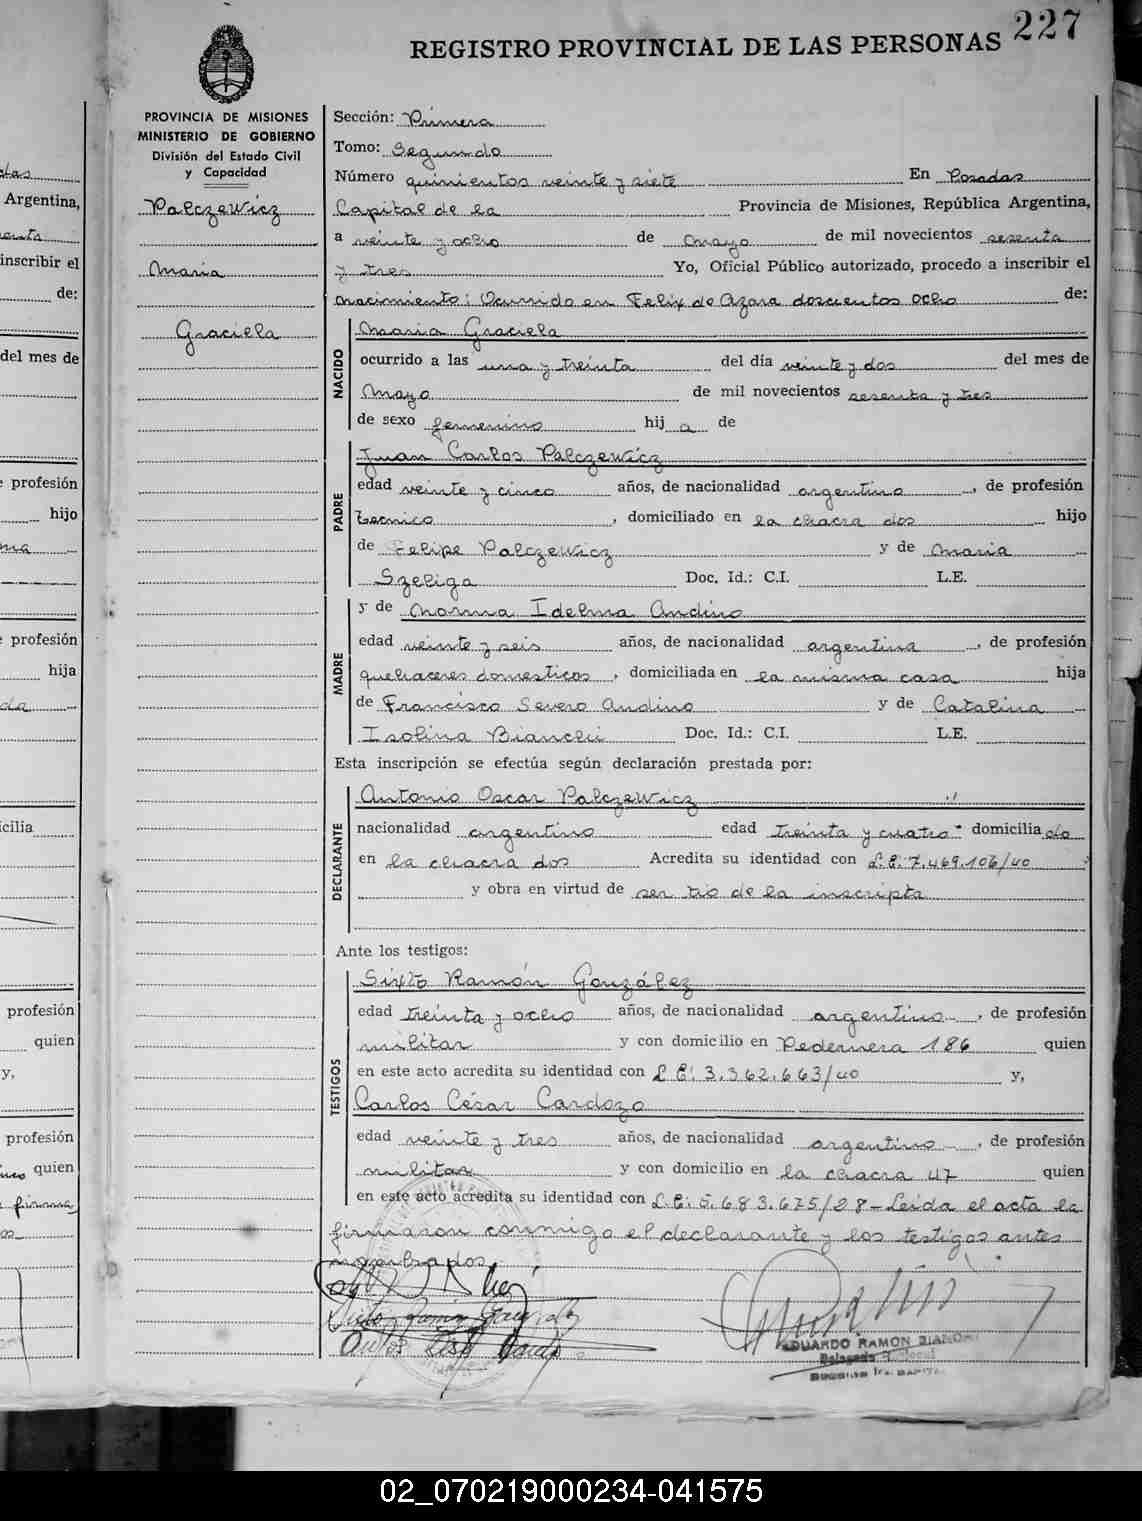 227
REGISTRO PROVINCIAL DE LAS PERSONAS
PROVINCIA DE MISIONES
MINISTERIO DE GOBIERNO
División del Estado Civil
y Capacidad
Palczewicz
Maria
Graciela
Sección: Primera
Tomo: Segundo
Número quinientos veinte y siete En Posadas
Capital de la Provincia de Misiones, República Argentina,
a veinte y ocho de mayo de mil novecientos sesenta
y tres Yo, Oficial Público autorizado, procedo a inscribir el
nacimiento: Ocurrido en Felix de Azara doscientos ocho de:
NACIDO
Maria Graciela
ocurrido a las una y treinta del día veinte y dos del mes de
Mayo de mil novecientos sesenta y tres
de sexo femenino hij a de
PADRE
Juan Carlos Palczewicz
edad veinte y cinco años, de nacionalidad argentino, de profesión
tecnico, domiciliado en la chacra dos hijo
de Felipe Palczewicz y de Maria
Szeliga Doc. Id.: C.I. L.E.
MADRE
y de Norma Idelma Andino
edad veinte y seis años, de nacionalidad argentina, de profesión
quehaceres domesticos, domiciliada en la misma casa hija
de Francisco Severo Andino y de Catalina
Isolina Bianchi Doc. Id.: C.I. L.E.
Esta inscripción se efectúa según declaración prestada por:
DECLARANTE
Antonio Oscar Palczewicz
nacionalidad argentino edad treinta y cuatro domicilia do
en la chacra dos Acredita su identidad con L.E. 7.469.106/40
y obra en virtud de ser tio de la inscripta
Ante los testigos:
TESTIGOS
Sixto Ramón González
edad treinta y ocho años, de nacionalidad argentino, de profesión
militar y con domicilio en Pedernera 186 quien
en este acto acredita su identidad con L.E. 3.362.663/40 y,
Carlos César Cardozo
edad veinte y tres años, de nacionalidad argentino, de profesión
militar y con domicilio en la chacra 47 quien
en este acto acredita su identidad con L.E. 5.683.675/28 - Leida el acta la
firmaron conmigo el declarante y los testigos antes
nombrados.
EDUARDO RAMON
02_070219000234-041575